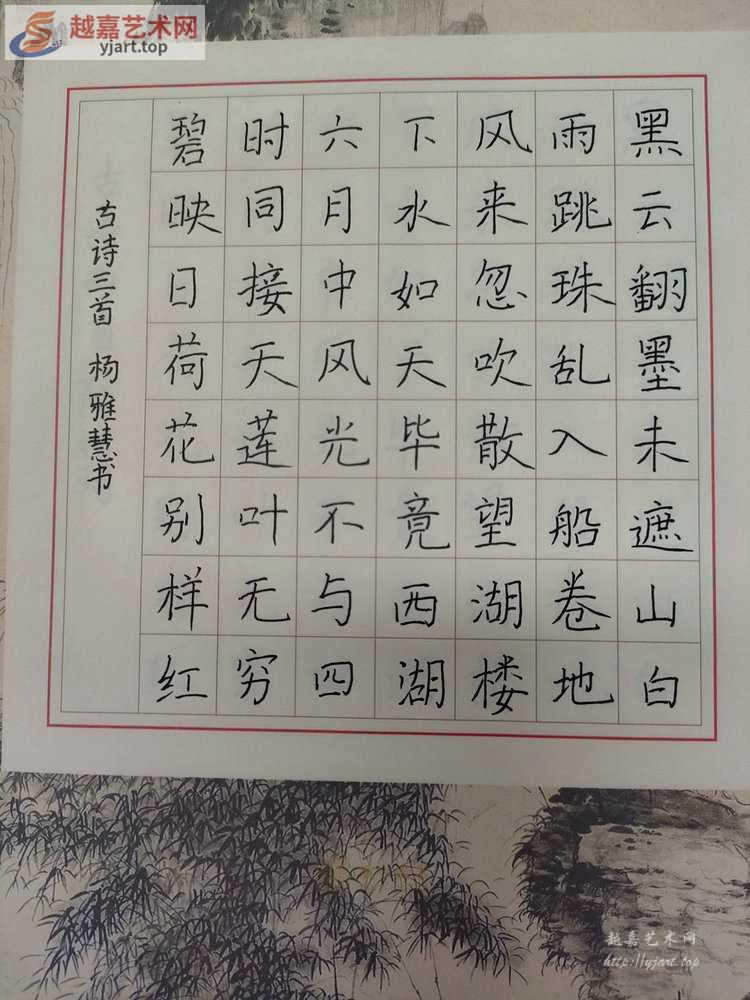 越嘉艺术网
yjart.top
黑云翻墨未遮山白
雨跳珠乱入船卷地
风来忽吹散望湖楼
下水如天毕竟西湖
六月中风光不与四
时同接天莲叶无穷
碧映日荷花别样红
古诗三首 杨雅慧书
越嘉艺术网
http://yjart.top